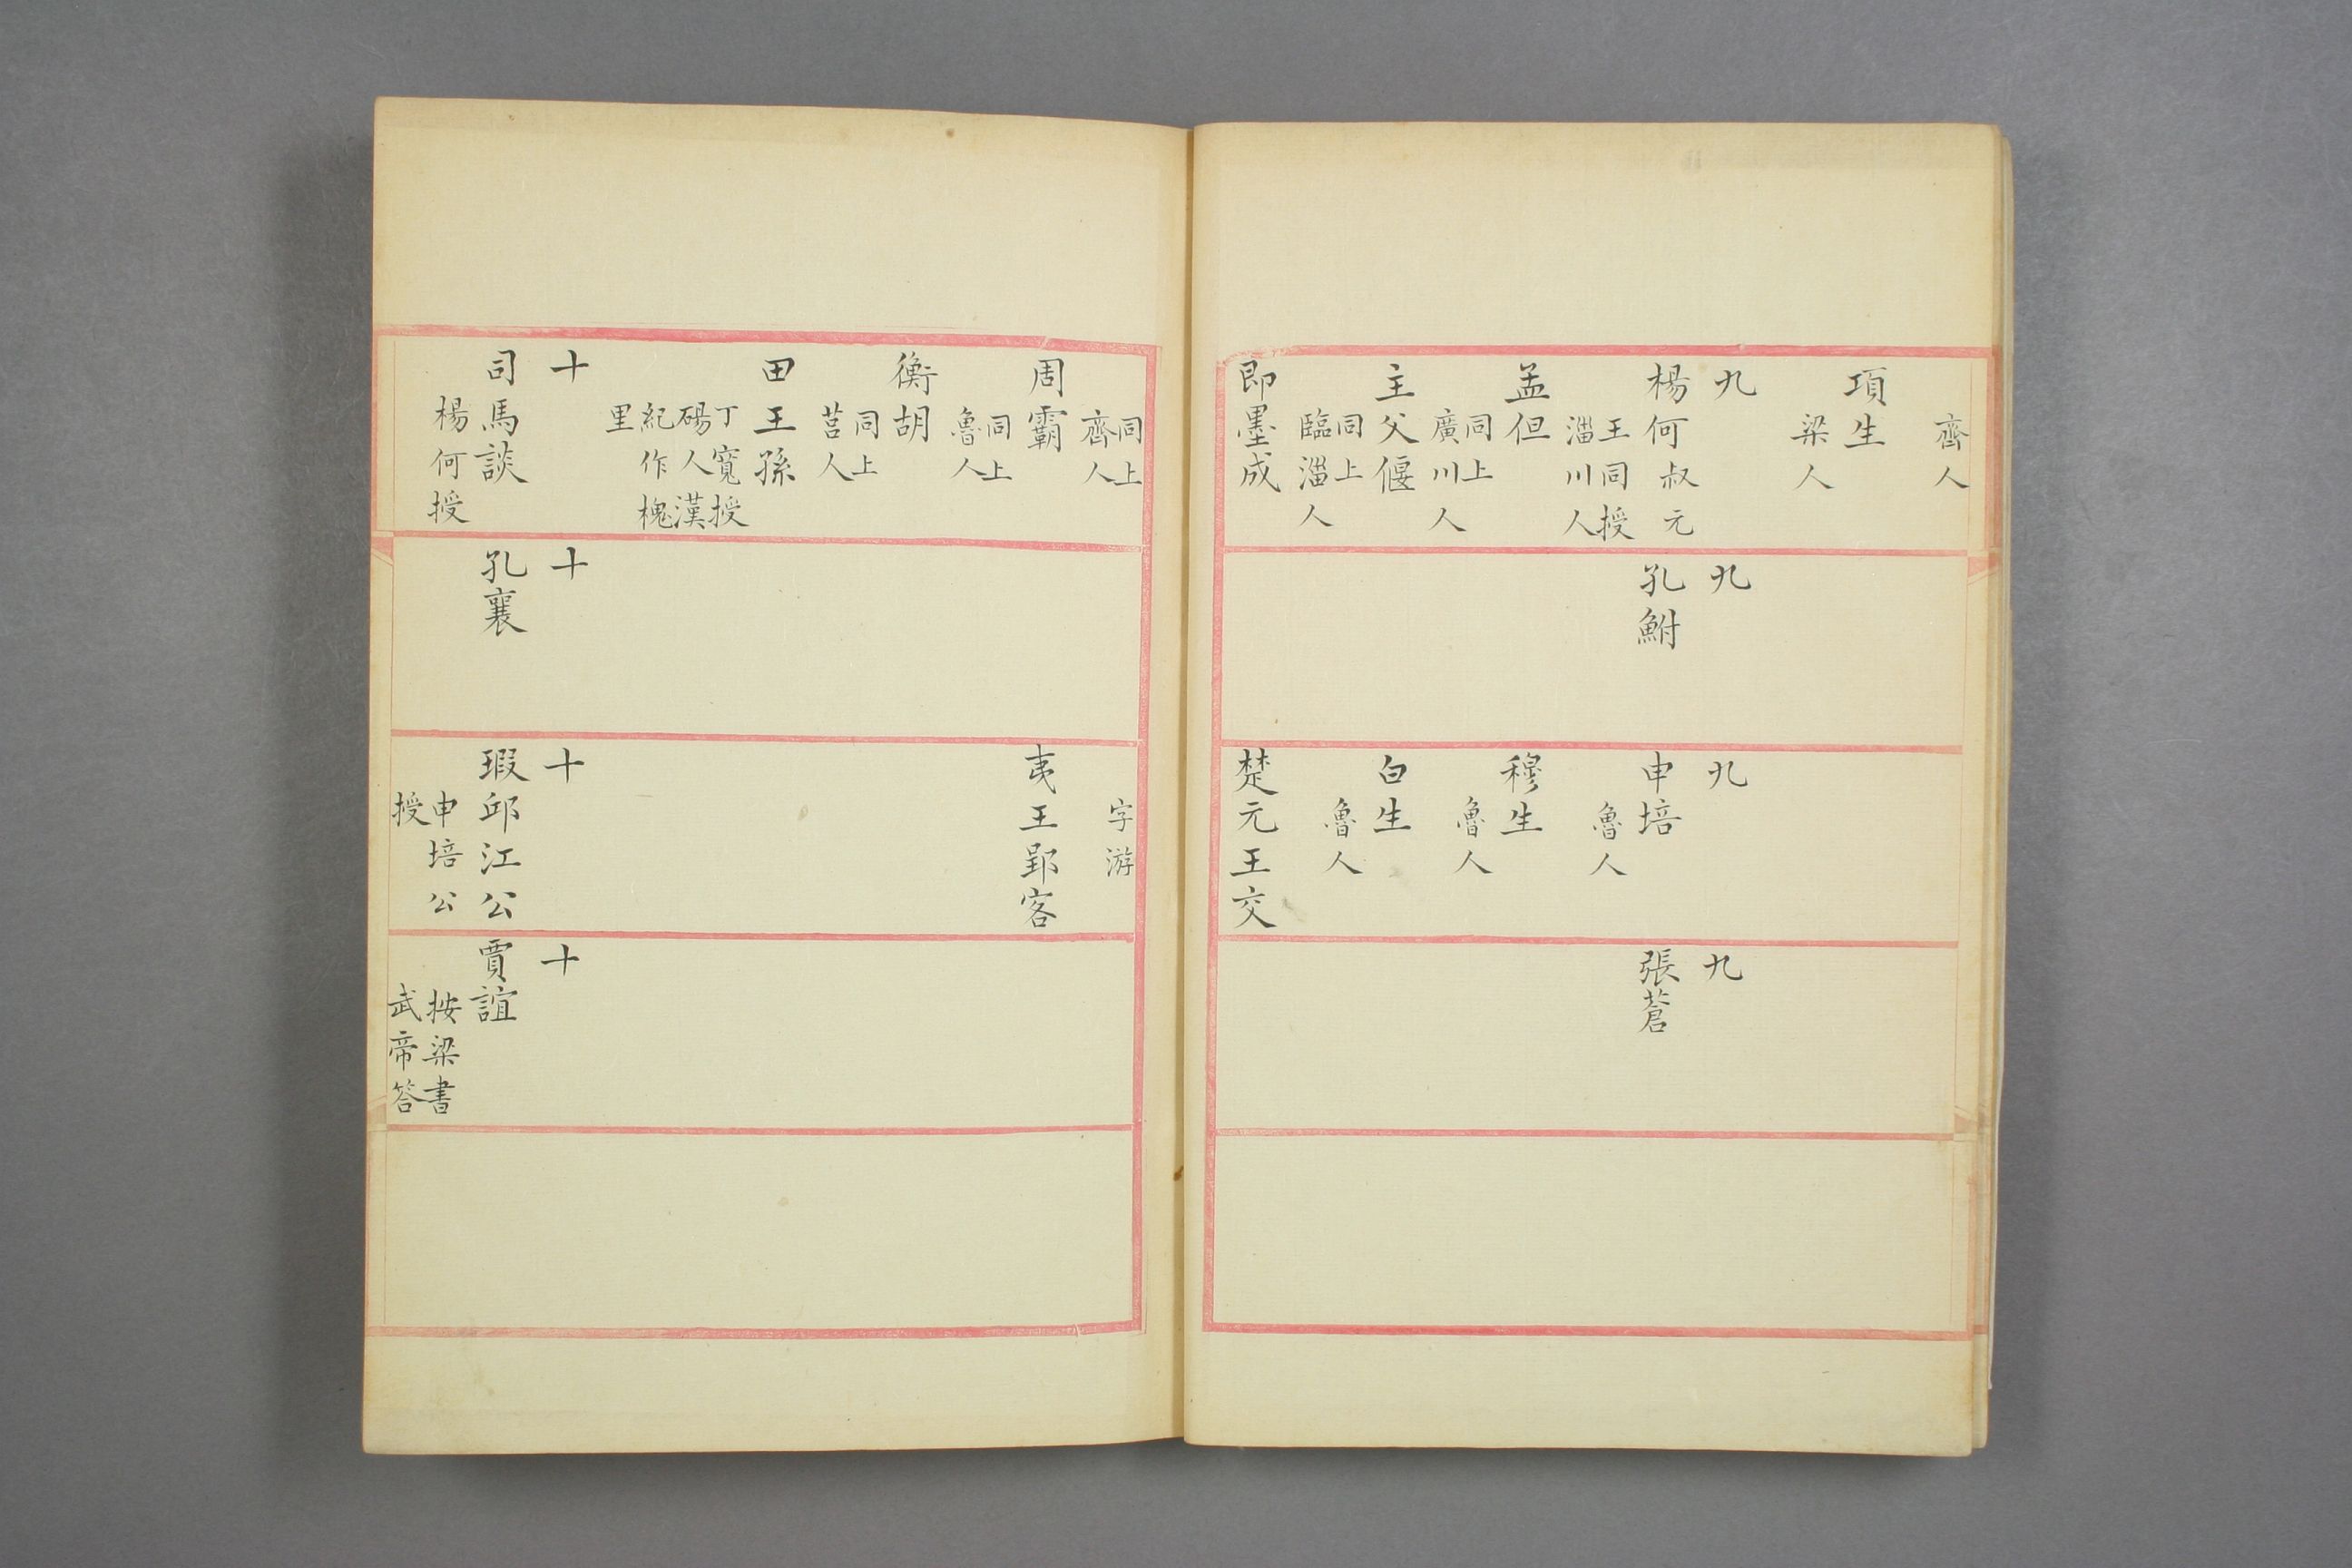 齊人
項生
梁人
九
楊何叔元
王同授
淄川人
孟但
同上
廣川人
主父偃
同上
臨淄人
即墨成
九
孔鮒
九
申培
魯人
穆生
魯人
白生
魯人
楚元王交
九
張蒼
同上
齊人
周霸
同上
魯人
衡胡
同上
莒人
田王孫
丁寬授
碭人漢
紀作槐
里
十
司馬談
楊何授
十
孔襄
字游
夷王郢客
十
瑕邱江公
申培公
授
十
賈誼
按梁書
武帝答